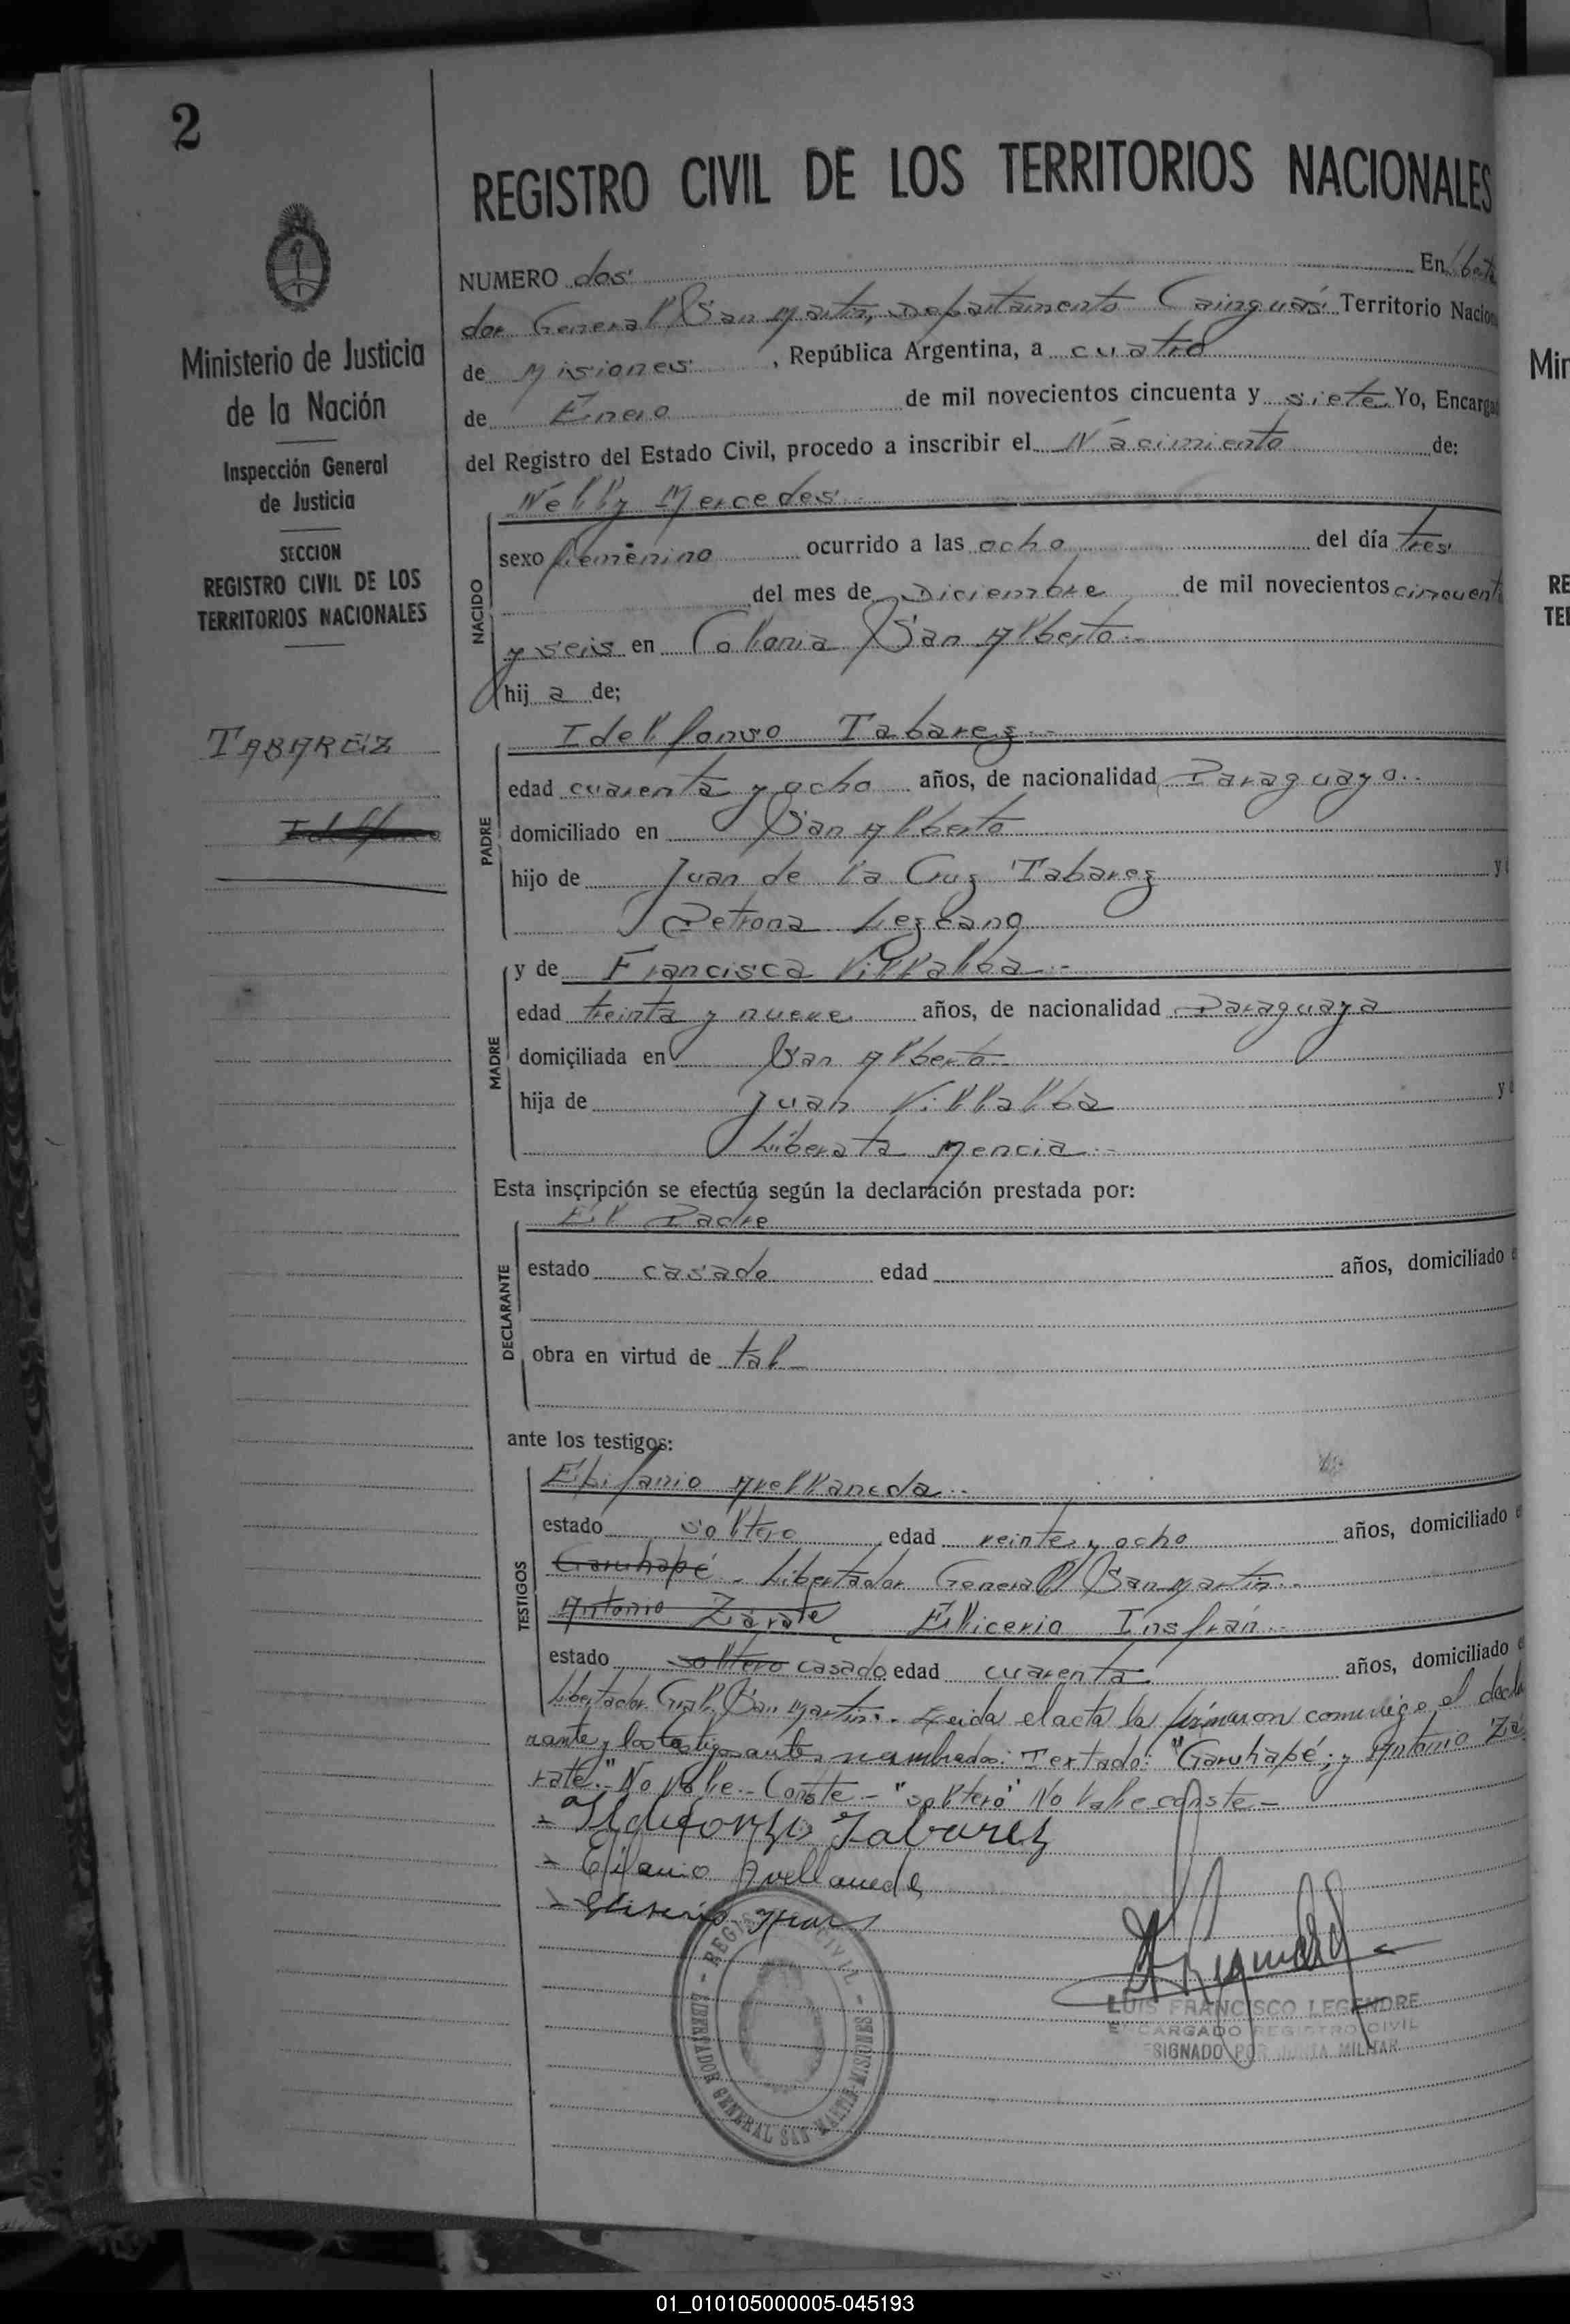 2
REGISTRO CIVIL DE LOS TERRITORIOS NACIONALES
Ministerio de Justicia
de la Nación
Inspección General
de Justicia
SECCION
REGISTRO CIVIL DE LOS
TERRITORIOS NACIONALES
TABAREZ
Idelfonso
NUMERO dos En
dor General San Martin, Departamento Cainguás Territorio Nacion
de Misiones , República Argentina, a cuatro
de Enero de mil novecientos cincuenta y siete Yo, Encargad
del Registro del Estado Civil, procedo a inscribir el Nacimiento de:
Nelly Mercedes
NACIDO
sexo femenino ocurrido a las ocho del día tres
del mes de Diciembre de mil novecientos cincuenta
y seis en Colonia San Alberto
hij a de;
PADRE
Idelfonso Tabarez
edad cuarenta y ocho años, de nacionalidad Paraguayo
domiciliado en San Alberto
hijo de Juan de la Cruz Tabarez y
Petrona Lezcano
MADRE
y de Francisca Villalba
edad treinta y nueve años, de nacionalidad Paraguaya
domiciliada en San Alberto
hija de Juan Villalba y
Liberata Mencia
Esta inscripción se efectúa según la declaración prestada por:
DECLARANTE
El Padre
estado casado edad años, domiciliado
obra en virtud de tal
ante los testigos:
TESTIGOS
Epifanio Avellaneda
estado soltero edad veinte y ocho años, domiciliado
Garuhapé - Libertador General San Martin
Antonio Zárate Elicerio Insfrán
estado soltero casado edad cuarenta años, domiciliado
Libertador Gral. San Martin. - Leida el acta la firmaron conmigo el decla
rante y los testigos antes nombrados: Textado: "Garuhapé; y Antonio Zá
rate." No Vale. - Conste - "soltero" No Vale conste -
- Ildefonzo Tabarez
- Epifanio Avellaneda
REGISTRO CIVIL - LIBERTADOR GENERAL SAN MARTIN - MISIONES
LUIS FRANCISCO LEGENDRE
ENCARGADO REGISTRO CIVIL
SIGNADO POR JUNTA MILITAR
Min
RE
TER
01_010105000005-045193